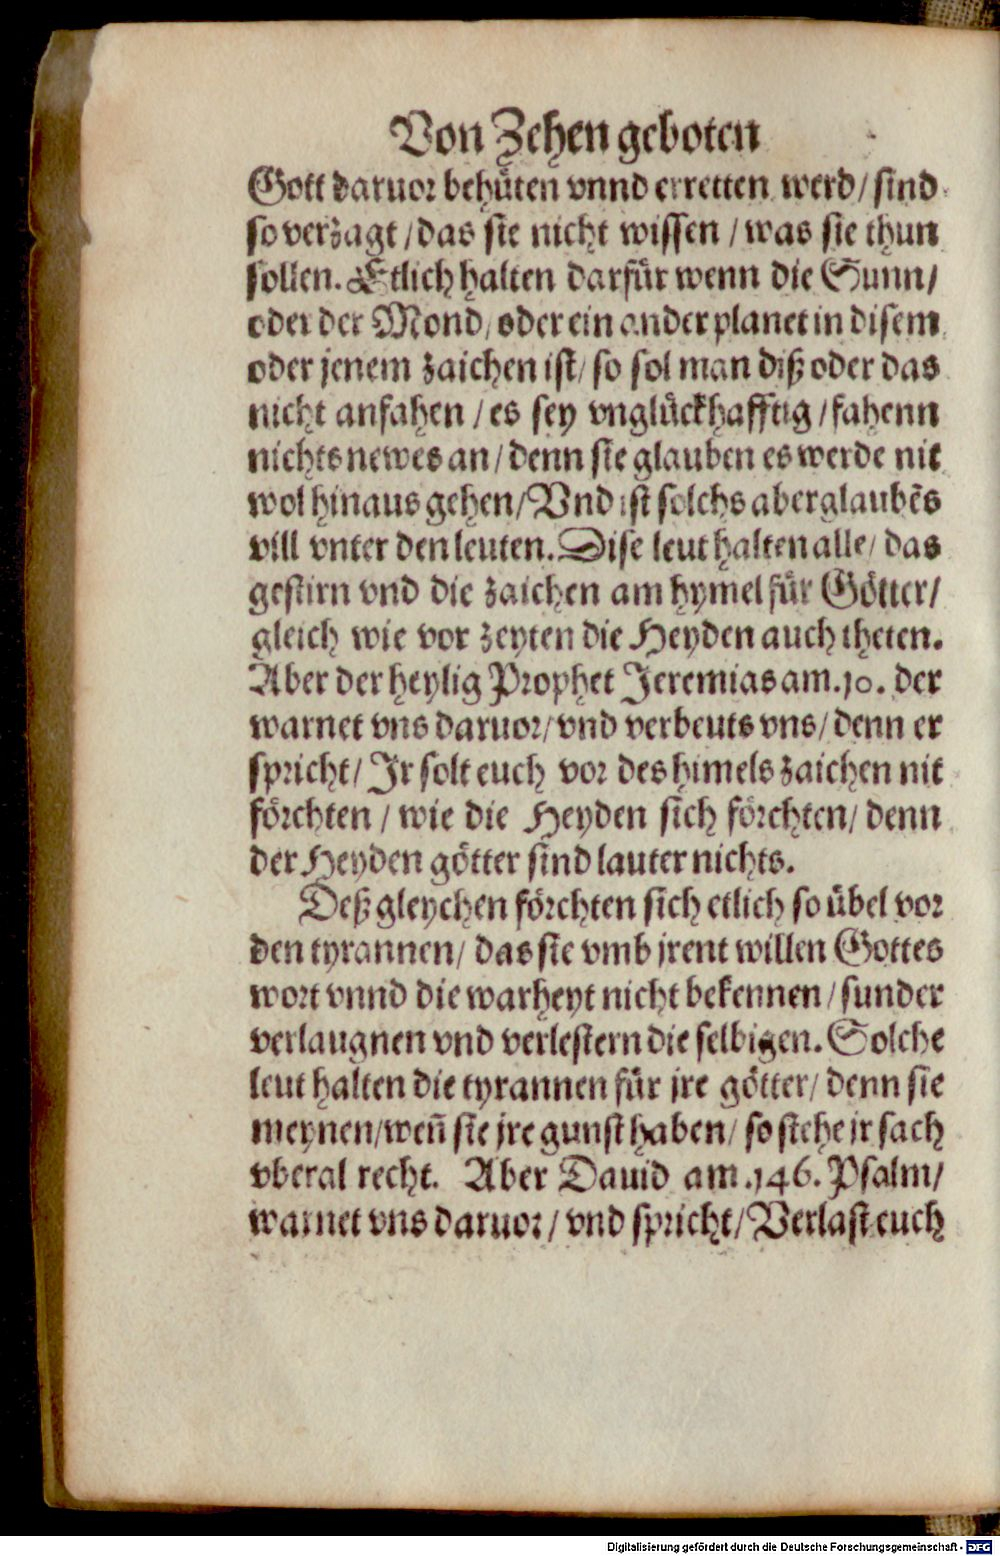 Von Zehen geboten
Gott daruor behüten vnnd erretten werd/ sind
so verzagt/ das sie nicht wissen / was sie thun
sollen. Etlich halten darfür wenn die Sunn/
oder der Mond/ oder ein ander planet in disem
oder jenem zaichen ist/ so sol man diß oder das
nicht anfahen / es sey vnglückhafftig / fahenn
nichts newes an/ denn sie glauben es werde nit
wol hinaus gehen/ Vnd ist solchs aberglaubẽs
vill vnter den leuten. Dise leut halten alle/ das
gestirn vnd die zaichen am hymel für Götter/
gleich wie vor zeyten die Heyden auch theten.
Aber der heylig Prophet Jeremias am .10. der
warnet vns daruor/ vnd verbeuts vns/ denn er
spricht/ Jr solt euch vor des himels zaichen nit
förchten / wie die Heyden sich förchten/ denn
der Heyden götter sind lauter nichts.
Deß gleychen förchten sich etlich so übel vor
den tyrannen/ das sie vmb jrent willen Gottes
wort vnnd die warheyt nicht bekennen / sunder
verlaugnen vnd verlestern die selbigen. Solche
leut halten die tyrannen für jre götter/ denn sie
meynen/ weñ sie jre gunst haben/ so stehe jr sach
vberal recht. Aber Dauid am .146. Psalm/
warnet vns daruor/ vnd spricht/ Verlast euch
Digitalisierung gefördert durch die Deutsche Forschungsgemeinschaft - DFG